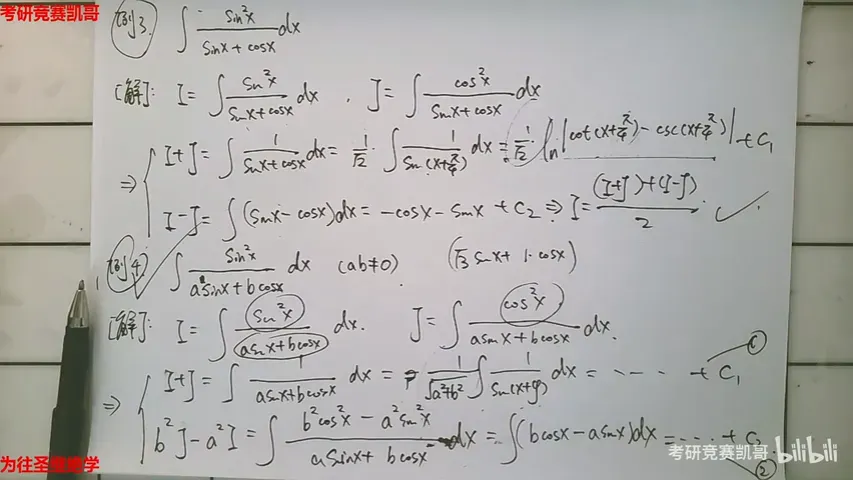 考研竞赛凯哥
例3. ∫ sin²x/(sinx+cosx) dx
[解]: I = ∫ sin²x/(sinx+cosx) dx , J = ∫ cos²x/(sinx+cosx) dx
⇒ { I+J = ∫ 1/(sinx+cosx) dx = 1/√2 · ∫ 1/sin(x+π/4) dx = 1/√2 · ln|cot(x+π/4) - csc(x+π/4)| + C₁
I-J = ∫(sinx-cosx)dx = -cosx-sinx + C₂ ⇒ I = ((I+J)+(I-J))/2 . ✓
例4. ∫ sin²x/(asinx+bcosx) dx (ab≠0) (√3 sinx + 1·cosx)
[解]: I = ∫ sin²x/(asinx+bcosx) dx. J = ∫ cos²x/(asinx+bcosx) dx.
⇒ { I+J = ∫ 1/(asinx+bcosx) dx = 1/√(a²+b²) ∫ 1/sin(x+φ) dx = ---- + C₁ ①
b²J-a²I = ∫ (b²cos²x-a²sin²x)/(asinx+bcosx) dx = ∫(bcosx-asinx)dx = --- + C₂ ②
考研竞赛凯哥 bilibili